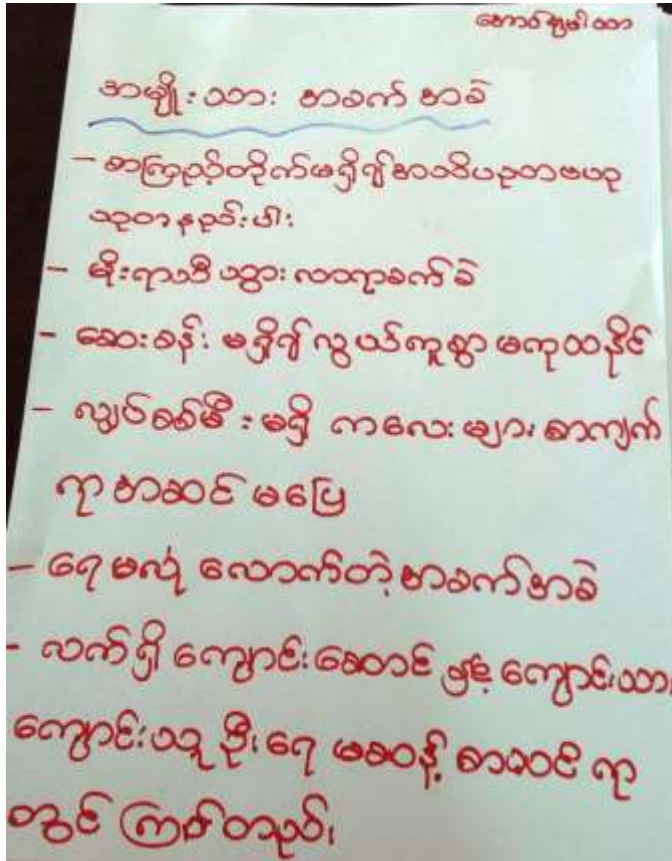 တောင်ရွာမါသာ
အမျိုးသား အခက် အခဲ
- စာကြည့်တိုက်မရှိ၍အသိပညာဗဟု
သုတာနည်းပါး
- မိုးရာသီ သွား လာရာခက်ခဲ
- ဆေးခန်း မရှိ၍ လွယ်ကူစွာ မကုသနိုင်
- လျှပ်စစ်မီး မရှိ ကလေးများ စာကျက်
ရာ အဆင် မပြေ
- ရေ မလုံ လောက်တဲ့ အခက်အခဲ
- လက်ရှိ ကျောင်းဆောင် ဖြင့် ကျောင်းသား
ကျောင်းသူ ဦးရေ မဆန့် စာသင် ရာ
တွင် ကြပ်တည်း